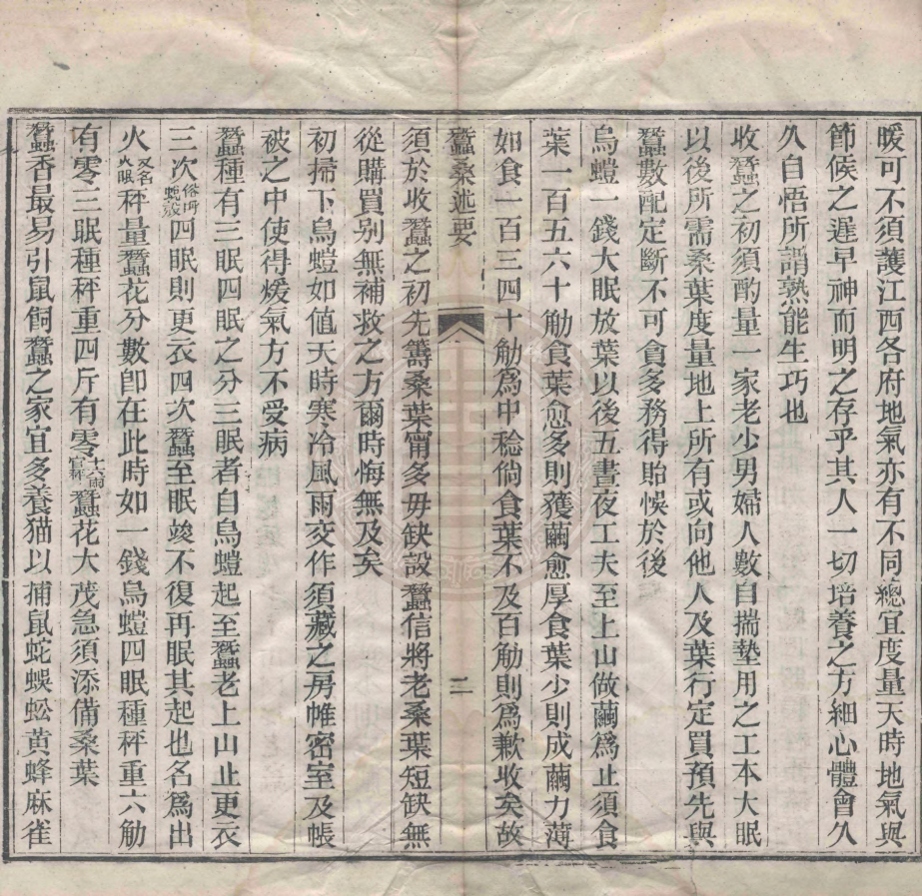 暖可不須護江西各府地氣亦有不同總宜度量天時地氣與
節候之遲早神而明之存乎其人一切培養之方細心體會久
久自悟所謂熟能生巧也
收蠶之初須酌量一家老少男婦人數自揣墊用之工本大眠
以後所需桑葉度量地上所有或向他人及葉行定買預先與
蠶數配定斷不可貪多務得貽悞於後
烏螘一錢大眠放葉以後五晝夜工夫至上山做繭爲止須食
葉一百五六十觔食葉愈多則獲繭愈厚食葉少則成繭力薄
如食一百三四十觔爲中稔倘食葉不及百觔則爲歉收矣故
蠶桑述要
二
須於收蠶之初先籌桑葉甯多毋缺設蠶信將老桑葉短缺無
從購買别無補救之方爾時悔無及矣
初掃下烏螘如值天時寒冷風雨交作須藏之房帷密室及帳
被之中使得煖氣方不受病
蠶種有三眠四眠之分三眠者自烏螘起至蠶老上山止更衣
三次俗所蜕殼四眠則更衣四次蠶至眠竣不復再眠其起也名爲出
火又名火眠秤量蠶花分數卽在此時如一錢烏螘四眠種秤重六觔
有零三眠種秤重四斤有零十六兩官秤蠶花大茂急須添備桑葉
蠶香最易引鼠飼蠶之家宜多養猫以捕鼠蛇蜈蚣黄蜂麻雀